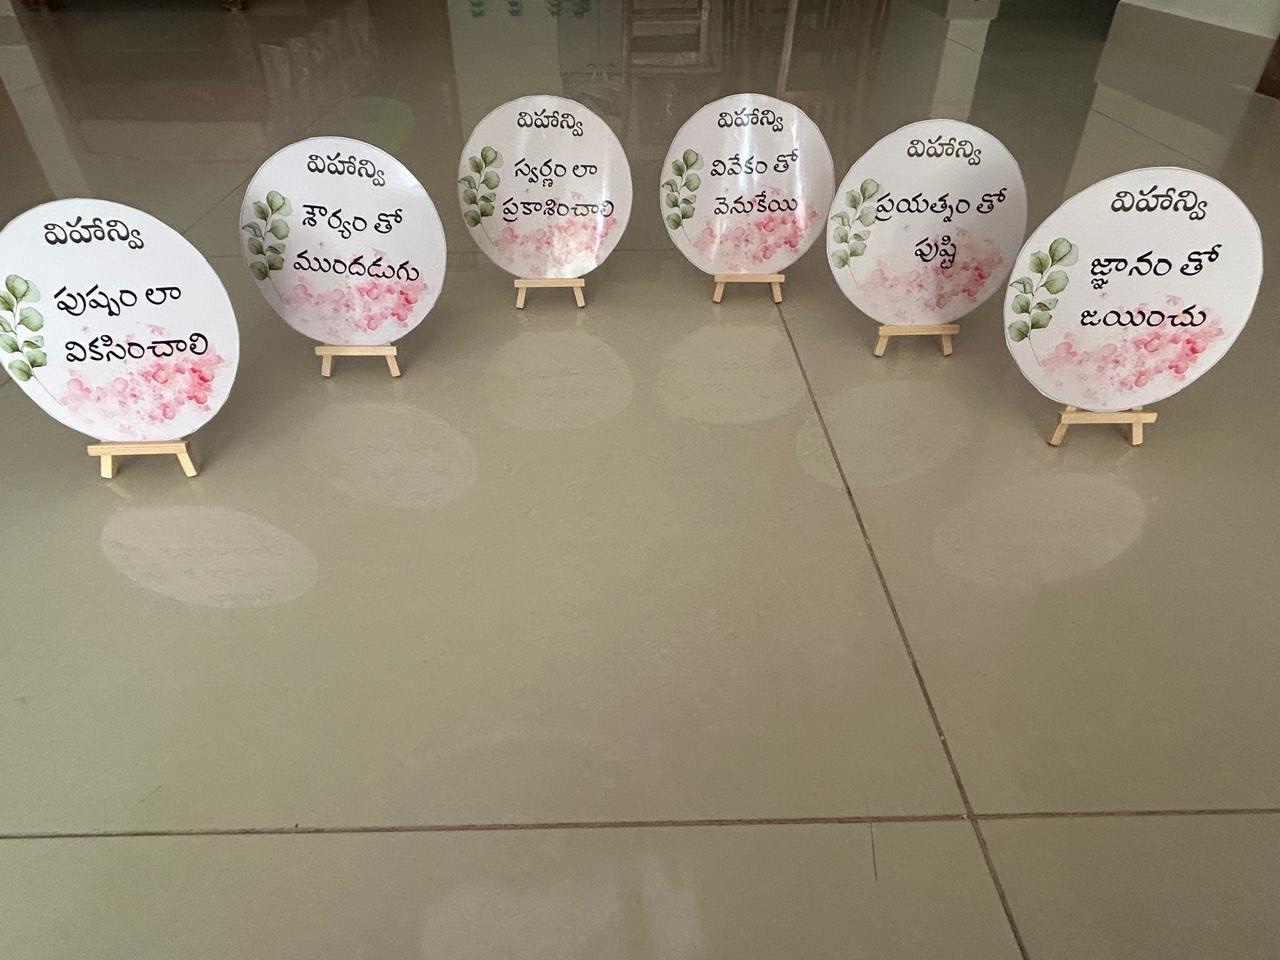 విహాన్వి
పుష్పం లా
వికసించాలి
విహాన్వి
శౌర్యం తో
ముందడుగు
విహాన్వి
స్వర్ణం లా
ప్రకాశించాలి
విహాన్వి
వివేకం తో
వెనుకేయి
విహాన్వి
ప్రయత్నం తో
పుష్టి
విహాన్వి
జ్ఞానం తో
జయించు